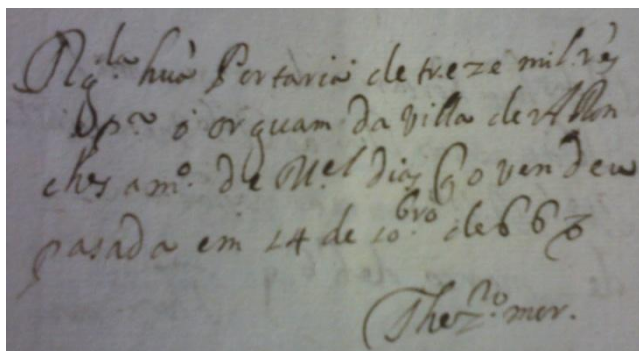 Rg.da huã Portaria de treze mil rẽs
p.ra o orguam da villa de Arron
ches a m.o de M.el dias q o vendeu
pasada em 14 de 10.bro de 66
Thez.ro mor.